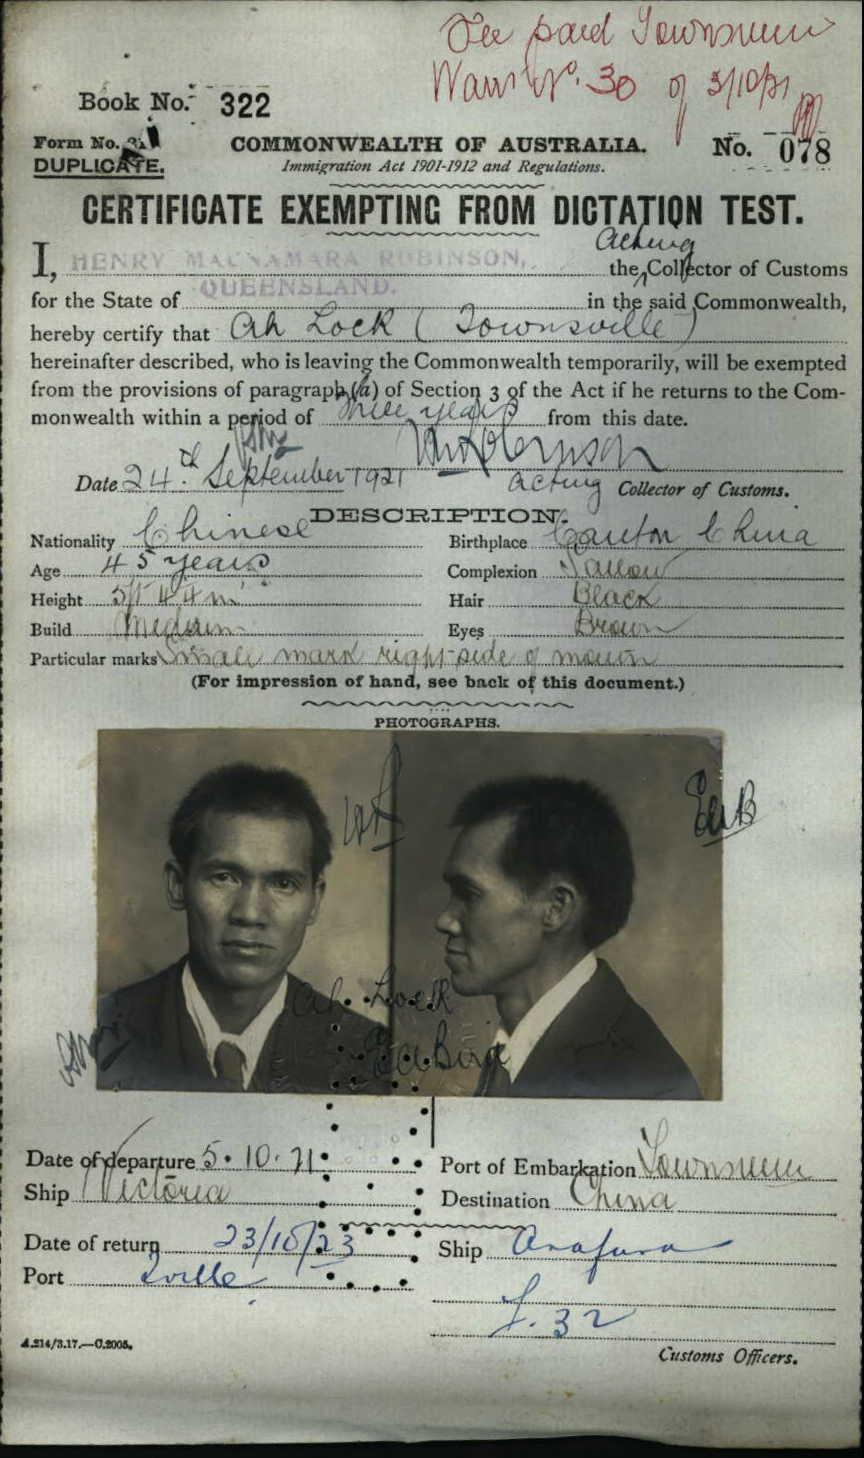 Fee paid Townsville
Warrt No. 30 of 3/10/21
Book No. 322
Form No. 21
DUPLICATE.
COMMONWEALTH OF AUSTRALIA.
Immigration Act 1901-1912 and Regulations.
No. 078
CERTIFICATE EXEMPTING FROM DICTATION TEST.
Acting
I, HENRY MACNAMARA ROBINSON, the Collector of Customs
QUEENSLAND.
for the State of in the said Commonwealth,
hereby certify that Ah Lock (Townsville)
hereinafter described, who is leaving the Commonwealth temporarily, will be exempted
from the provisions of paragraph (a) of Section 3 of the Act if he returns to the Com-
monwealth within a period of three years from this date.
Date 24th September 1921 acting Collector of Customs.
DESCRIPTION.
Nationality Chinese Birthplace Canton China
Age 45 years Complexion Sallow
Height 5ft 4¼ in Hair Black
Build Medium Eyes Brown
Particular marks Small mark right side of mouth
(For impression of hand, see back of this document.)
PHOTOGRAPHS.
Ah Lock
Date of departure 5.10.21 Port of Embarkation Townsville
Ship Victoria Destination China
Date of return 23/10/23 Ship Arafura
Port Tville
F. 32
A.214/3.17.—C.2005. Customs Officers.